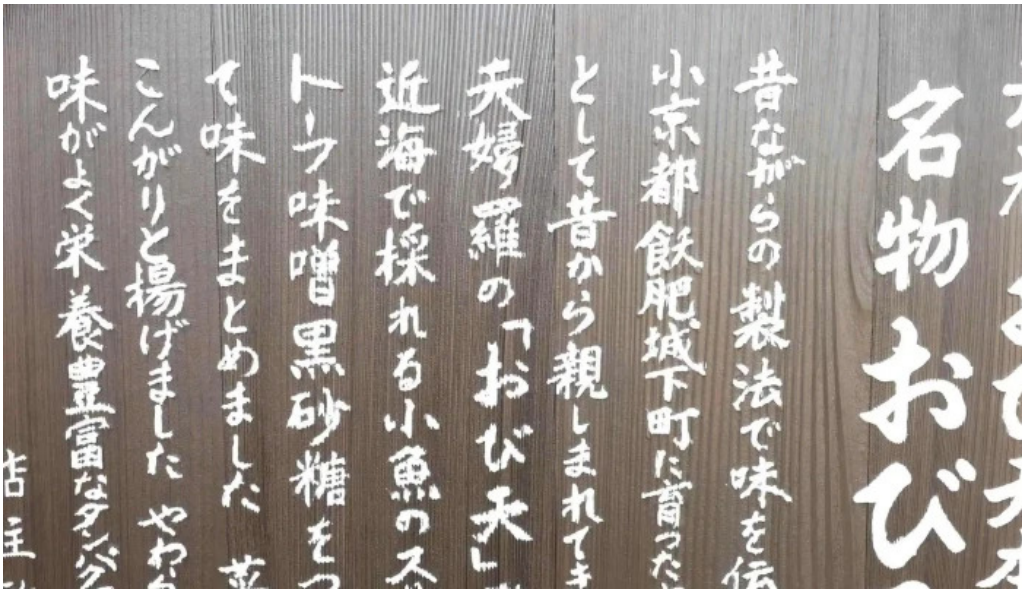 名物おび
昔ながらの製法で味を伝
小京都飫肥城下町に育った
として昔から親しまれてき
天婦羅の「おび天」
近海で採れる小魚のス
トーフ味噌黒砂糖をつ
て味をまとめました 菜
こんがりと揚げました やわら
味がよく栄養豊富なタンパク
店主